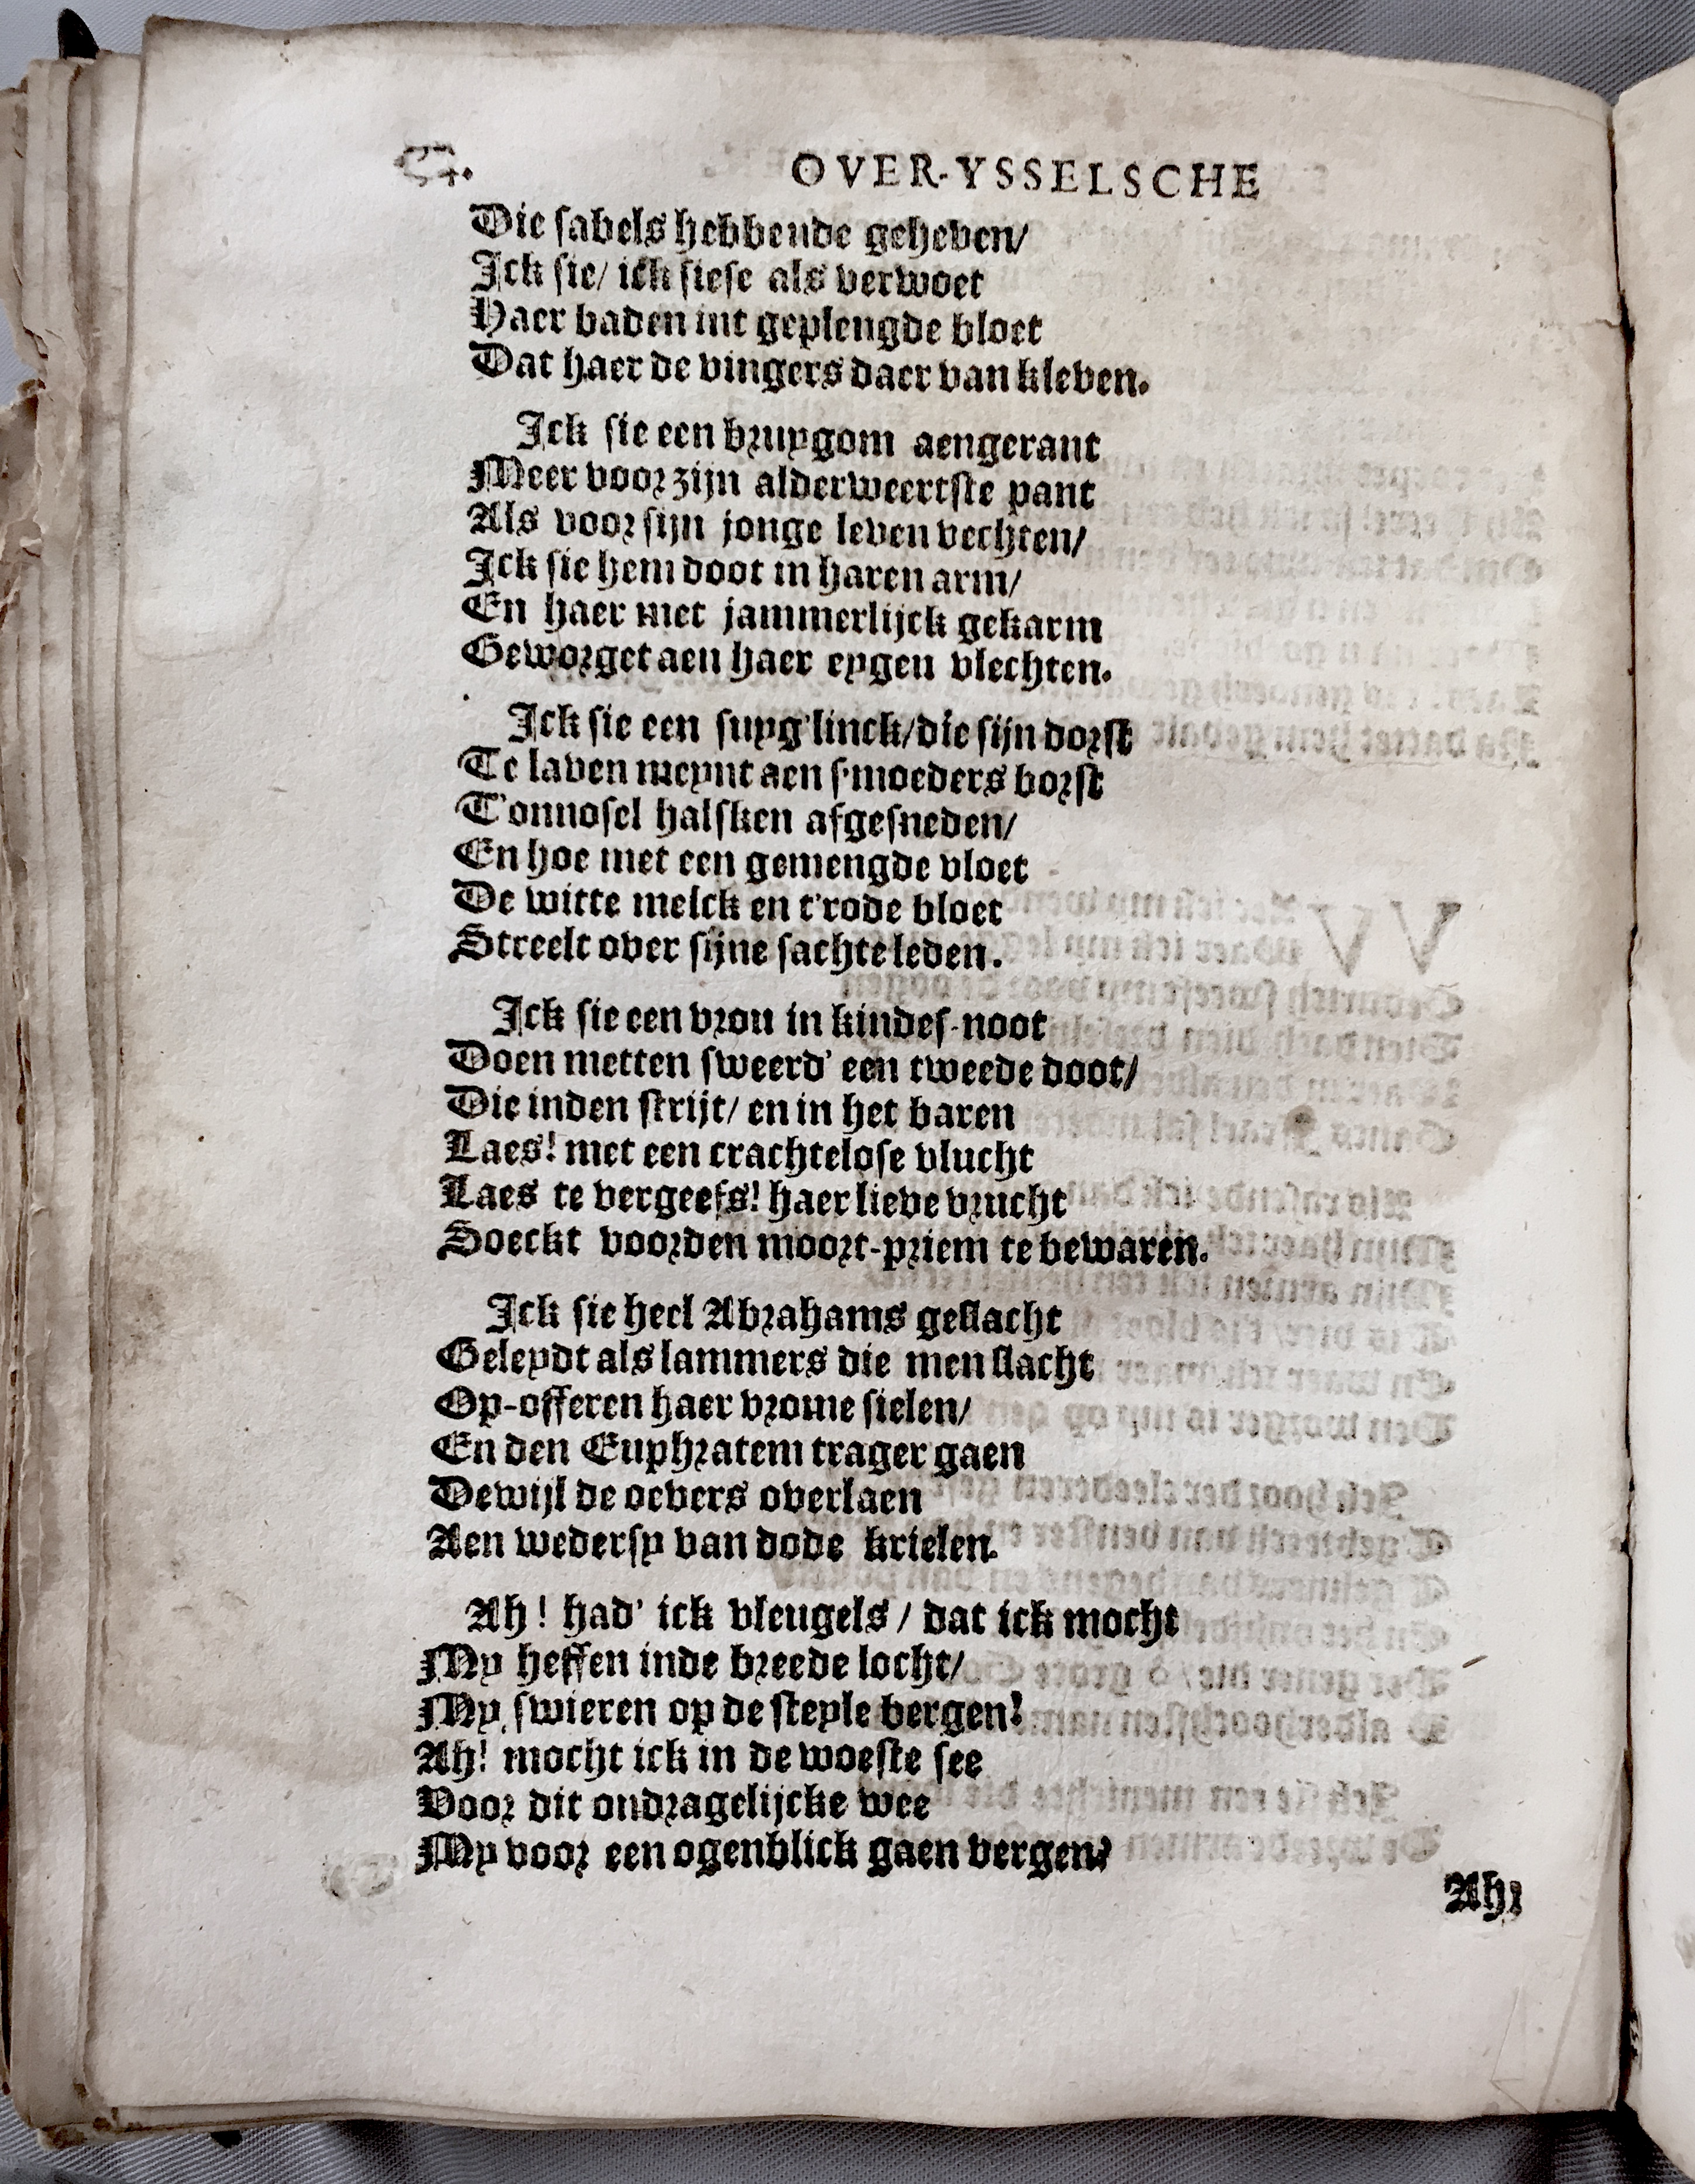 OVER-YSSELSCHE
Die sabels hebbende geheven/
Ick sie/ ick siese als verwoet
Haer baden int geplengde bloet
Dat haer de vingers daer van kleven.
Ick sie een bruygom aengerant
Meer voor zijn alderweertste pant
Als voor sijn jonge leven vechten/
Ick sie hem doot in haren arm/
En haer met jammerlijck gekarm
Geworget aen haer eygen vlechten.
Ick sie een suyg'linck/die sijn dorst
Te laven meynt aen s'moeders borst
T'onnosel halsken afgesneden/
En hoe met een gemengde vloet
De witte melck en t'rode bloet
Streelt over sijne sachte leden.
Ick sie een vrou in kindes-noot
Doen metten sweerd' een tweede doot/
Die inden strijt/ en in het baren
Laes! met een crachtelose vlucht
Laes te vergeefs! haer lieve vrucht
Soeckt voorden moort-priem te bewaren.
Ick sie heel Abrahams geslacht
Geleydt als lammers die men slacht
Op-offeren haer vrome sielen/
En den Euphratem trager gaen
Dewijl de oevers overlaen
Aen wedersy van dode krielen.
Ah! had' ick vleugels / dat ick mocht
My heffen inde breede locht/
My swieren op de steyle bergen!
Ah! mocht ick in de woeste see
Voor dit ondragelijcke wee
My voor een ogenblick gaen bergen!
Ah!